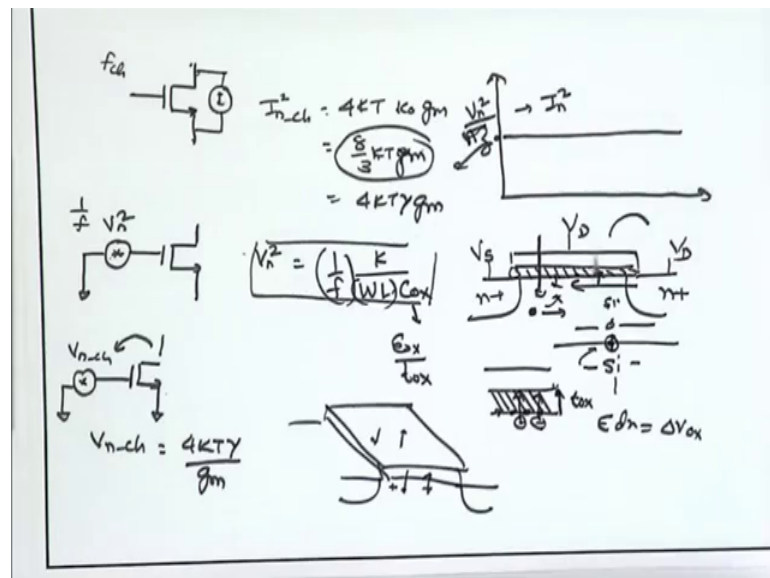 fch
I²n_ch = 4KT K0 gm
= 8/3 KTgm
= 4KTγgm
Vn² → In²
1/f Vn²
Vn² = (1/f) K/(WL)Cox
Ɛox/tox
VS VD VD
n+ n+
x
Si
tox
E dx = ΔVox
Vn_ch
Vn_ch = 4KTγ/gm